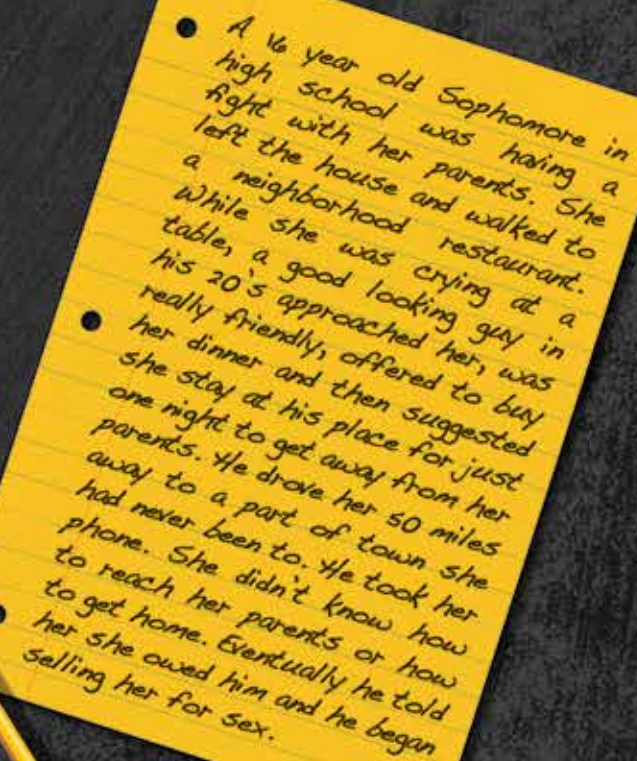 A 16 year old Sophomore in
high school was having a
fight with her parents. She
left the house and walked to
a neighborhood restaurant.
While she was crying at a
table, a good looking guy in
his 20's approached her, was
really friendly, offered to buy
her dinner and then suggested
she stay at his place for just
one night to get away from her
parents. He drove her 50 miles
away to a part of town she
had never been to. He took her
phone. She didn't know how
to reach her parents or how
to get home. Eventually he told
her she owed him and he began
selling her for sex.